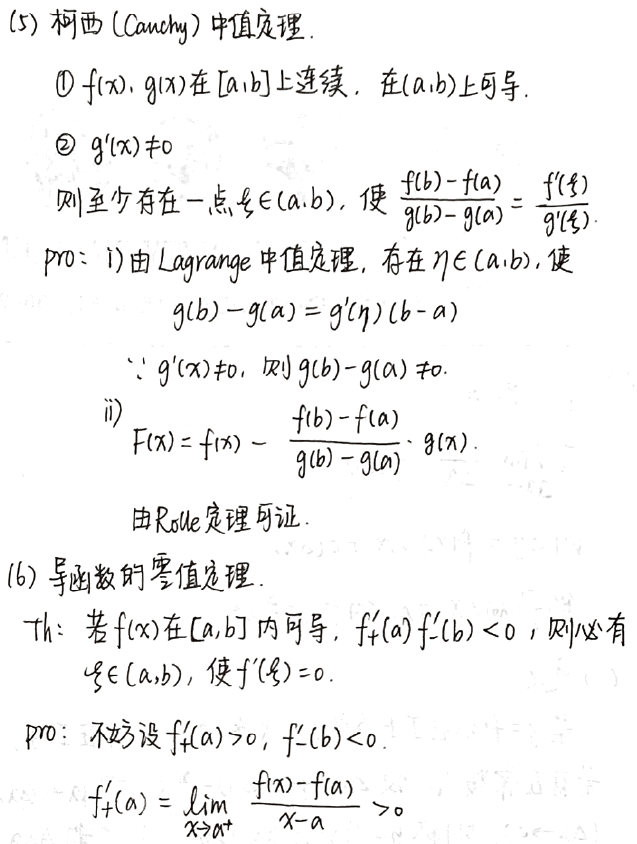 (5) 柯西 (Cauchy) 中值定理.
① f(x), g(x) 在 [a,b] 上连续, 在(a,b)上可导.
② g'(x) ≠ 0
则至少存在一点 ξ∈(a,b), 使 \frac{f(b)-f(a)}{g(b)-g(a)} = \frac{f'(ξ)}{g'(ξ)}.
pro: i) 由 Lagrange 中值定理, 存在 η∈(a,b), 使
g(b)-g(a) = g'(η)(b-a)
∵ g'(x)≠0, 则 g(b)-g(a) ≠0.
ii) F(x) = f(x) - \frac{f(b)-f(a)}{g(b)-g(a)} · g(x).
由Rolle定理可证.
(6) 导函数的零值定理.
Th: 若f(x)在[a,b]内可导, f'₊(a)f'₋(b)<0, 则必有
ξ∈(a,b), 使f'(ξ)=0.
pro: 不妨设f'₊(a)>0, f'₋(b)<0.
f'₊(a) = \lim_{x→a⁺} \frac{f(x)-f(a)}{x-a} >0